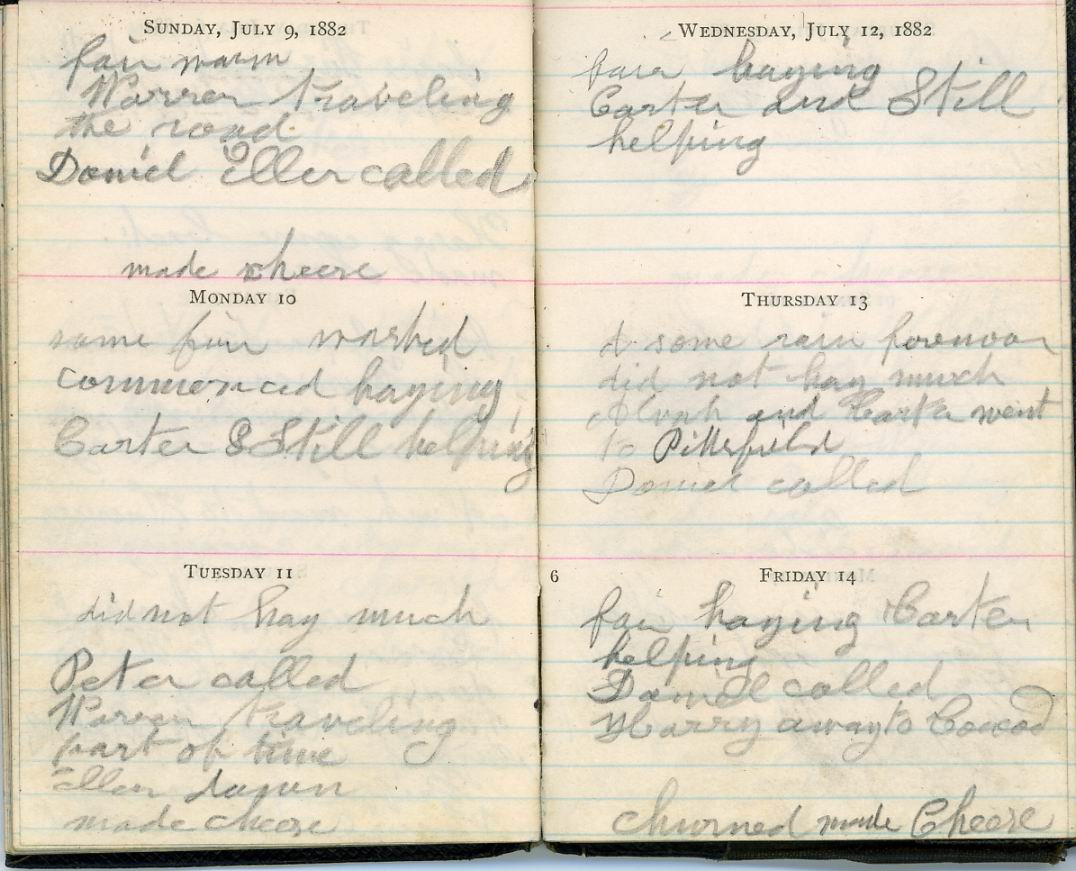 SUNDAY, JULY 9, 1882
fair warm
Warren traveling
the road
Daniel Ellen called
made cheese
MONDAY 10
some fair washed
commenced haying
Carter & Still helping
TUESDAY 11
did not hay much
Peter called
Warren traveling
part of time
Ellen down
made cheese
WEDNESDAY, JULY 12, 1882
fair haying
Carter and Still
helping
THURSDAY 13
some rain forenoon
did not hay much
and Carter went
to Pittsfield
Daniel called
6
FRIDAY 14
fair haying Carter
helping
Daniel called
Harry away to
churned made Cheese